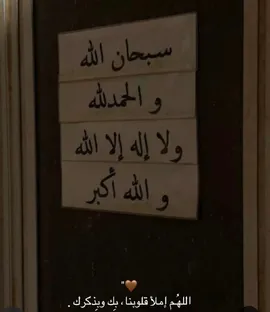 سبحان الله
و الحمدلله
ولا إله إلا الله
و الله أكبر
"🤎
اللهُم إملأ قلوبنا، بِك وبِذكرك .